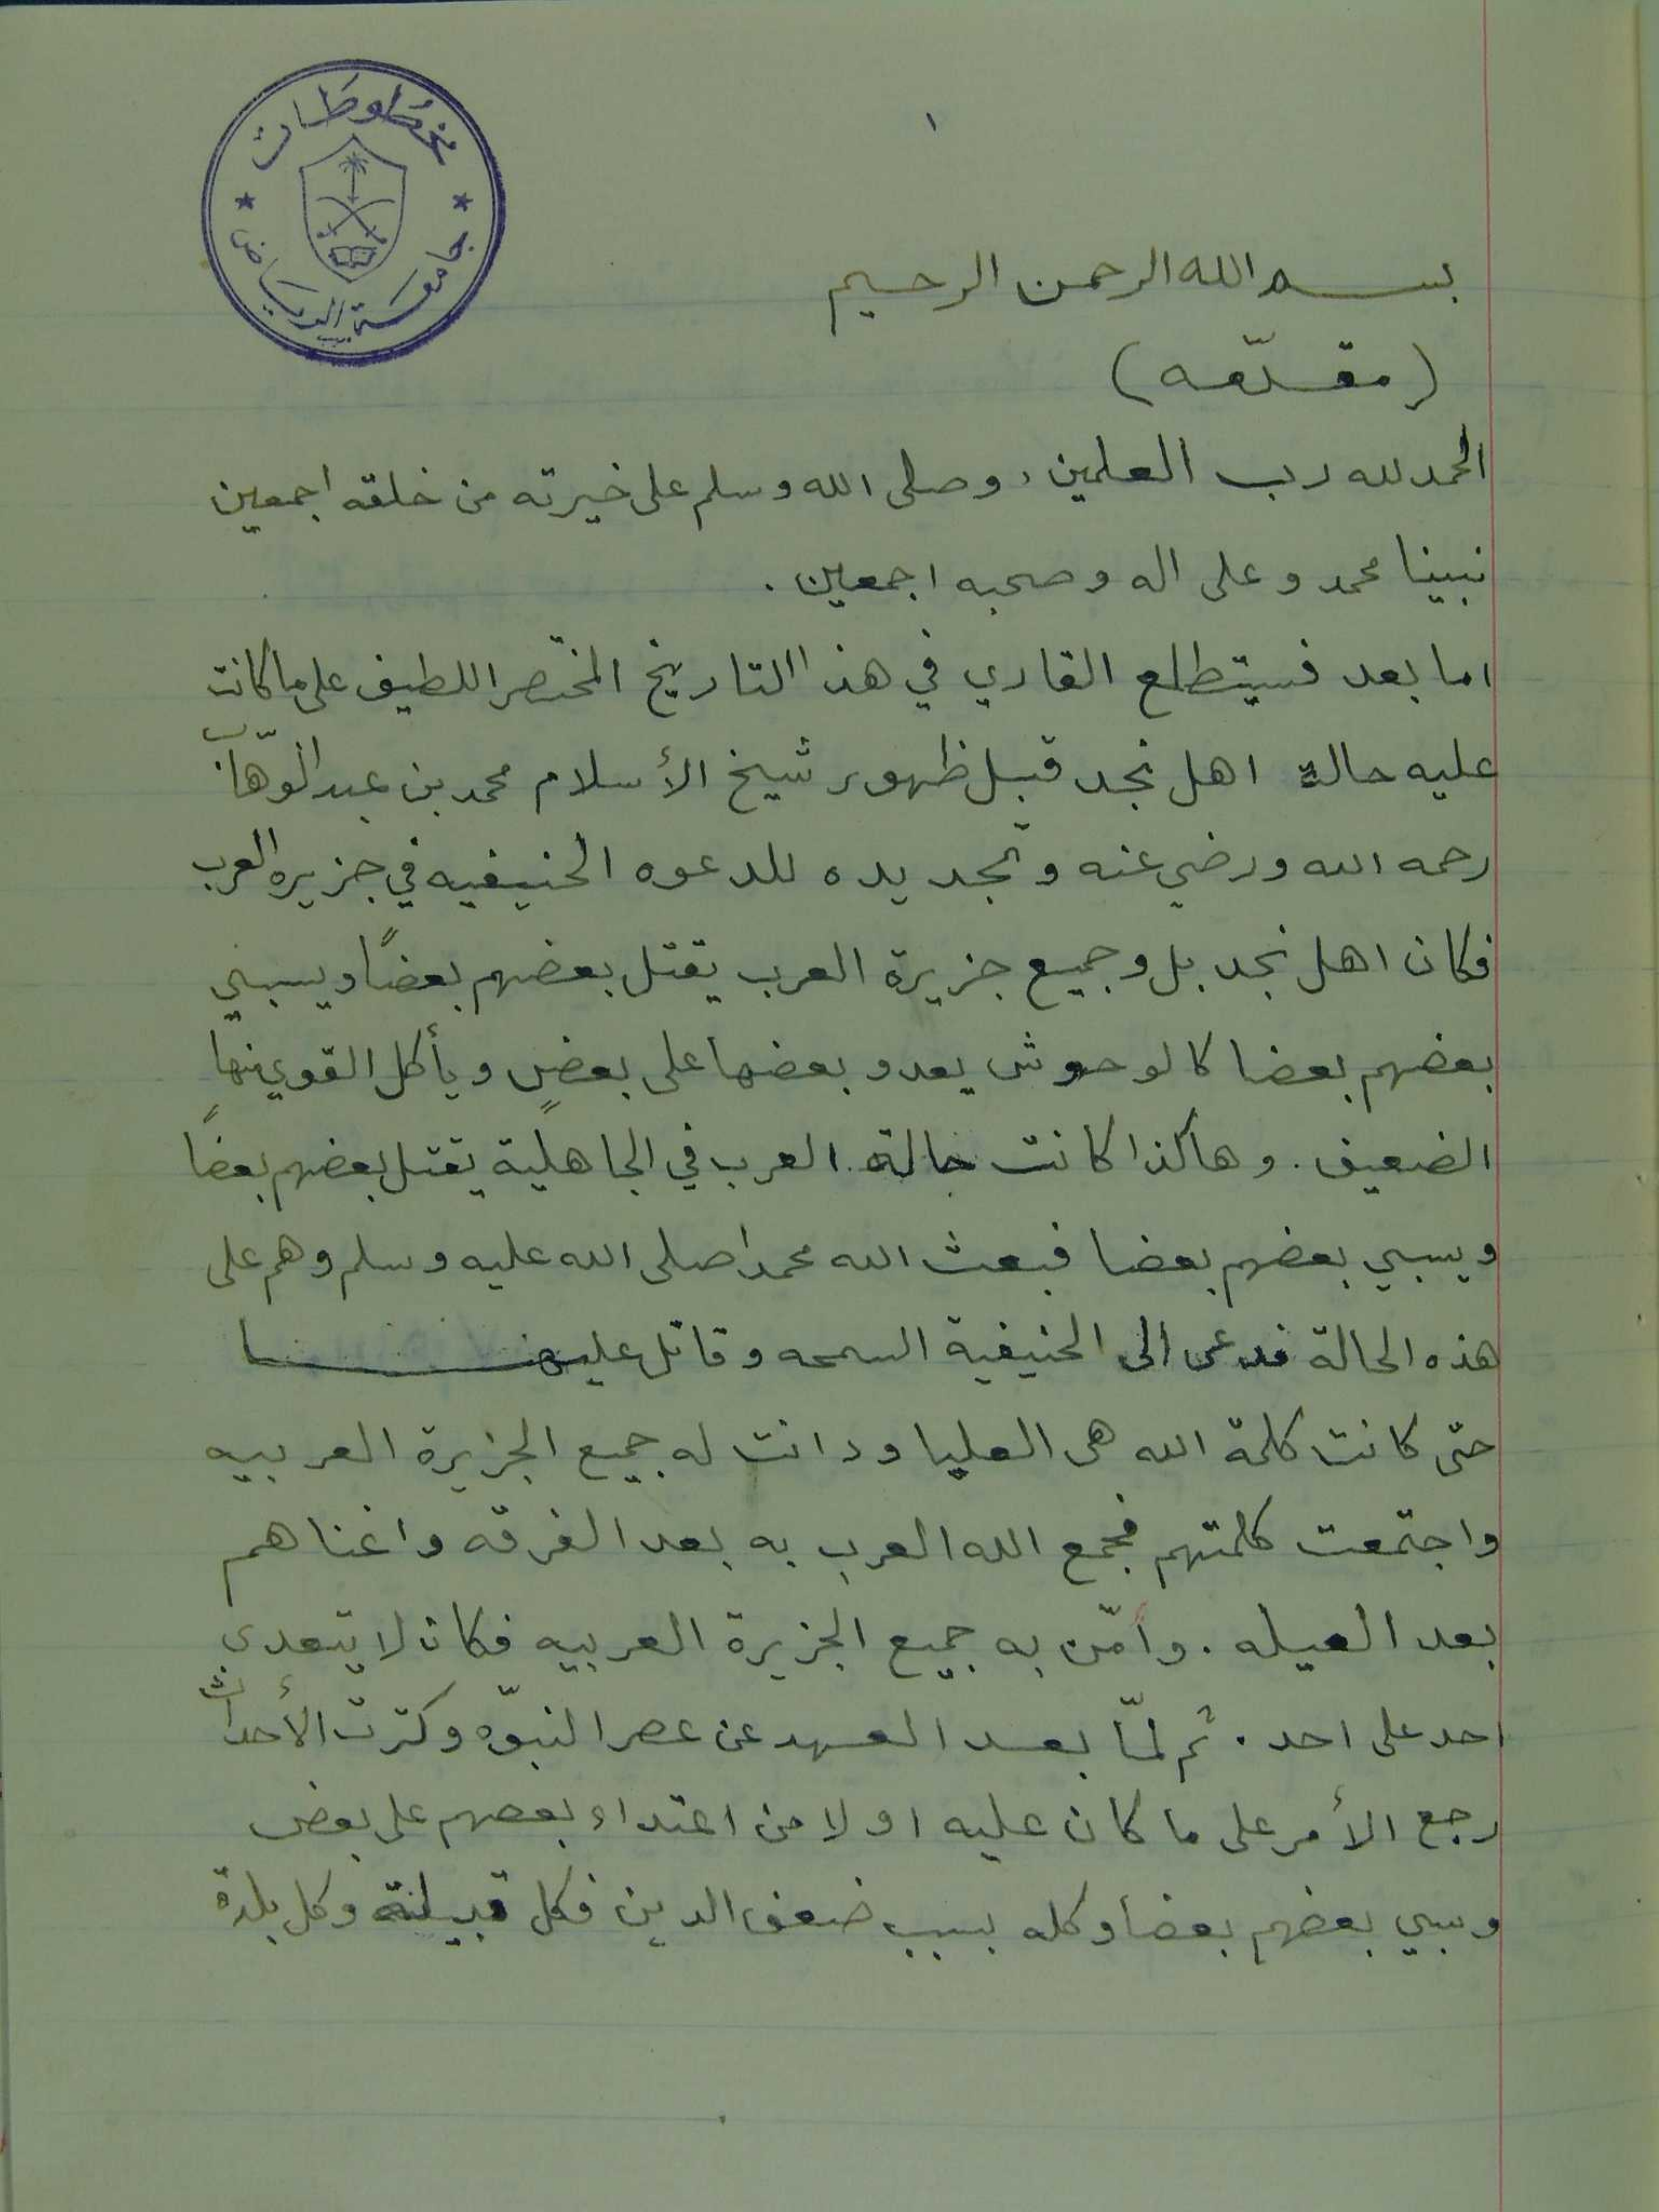 ١
مخطوطات
جامعة الرياض
بسم الله الرحمن الرحيم
(مقدّمه)
الحمد لله رب العلمين، وصلى الله وسلم على خيرته من خلقه اجمعين
نبينا محمد وعلى اله وصحبه اجمعين.
اما بعد فسيتطلع القاري في هذا التاريخ المختصر اللطيف على ما كانت
عليه حالة اهل نجد قبل ظهور شيخ الأسلام محمد بن عبد الوّهاب
رحمه الله ورضي عنه وتجديده للدعوه الحنيفيه في جزيره العرب
فكان اهل نجد بل وجميع جزيرة العرب يقتل بعضهم بعضًا ويسبي
بعضهم بعضا كالوحوش يعدو بعضها على بعضٍ ويأكل القوي منها
الضعيف. وهاكذا كانت حالة العرب في الجاهلية يقتل بعضهم بعضًا
ويسبي بعضهم بعضا فبعث الله محمدا صلى الله عليه وسلم وهم على
هذه الحالة فدعى الى الحنيفية السمحه وقاتل عليها
حتى كانت كلمة الله هى العليا ودانت له جميع الجزيرة العربيه
واجتمعت كلمتهم فجمع الله العرب به بعد الفرقه واغناهم
بعد العيله. وأمّن به جميع الجزيرة العربيه فكان لا يتعدى
احد على احد. ثم لمّا بعد العهد عن عصر النبوّه وكثرت الأحداث
رجع الأمر على ما كان عليه اولا من اعتداء بعضهم على بعض
وسبي بعضهم بعضا وكله بسبب ضعف الدين فكل قبيلة وكل بلدة